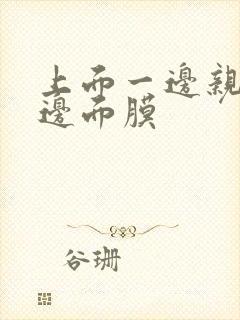 上而一邊親
邊而膜
谷珊